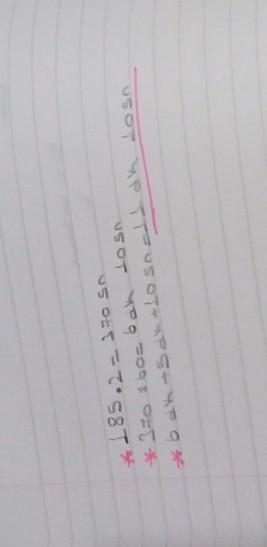 * 185.2=370 sn
* 370:60= 6 dk 10sn
* 6 dk +5 dk +10sn=11 dk 10sn